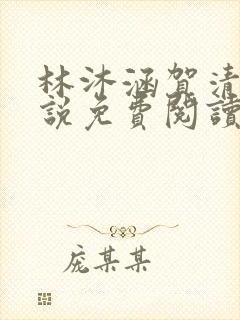 林沐涵賀清
說免費閱讀
庞某某